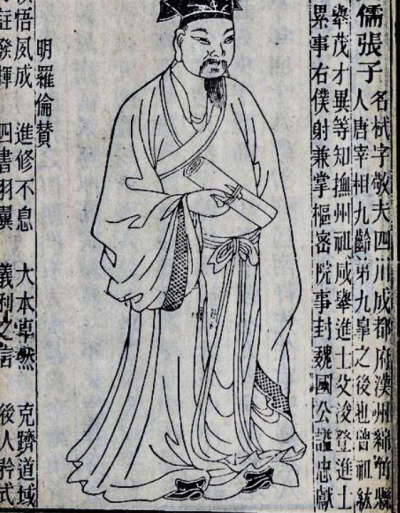 儒張子
名栻字敬夫四川成都府漢州綿竹縣
人唐宰相九齡弟九皋之後也曾祖紘
舉茂才異等知撫州祖咸舉進士父浚登進士
累事右僕射兼掌樞密院事封魏國公諡忠獻
明羅倫贊
悟夙成 進修不息 大本卓然 克躋道域
註發揮 四書羽翼 義利之言 後人矜式